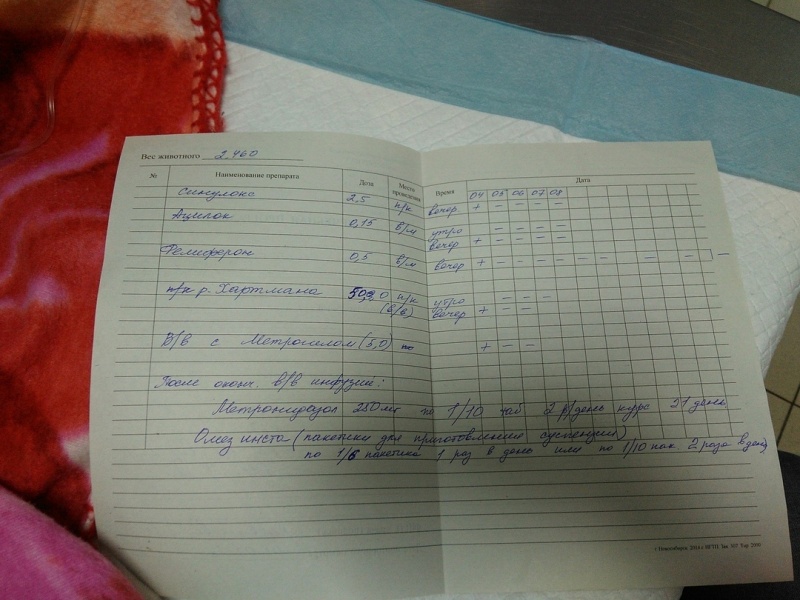 Вес животного 2,460
№ Наименование препарата Доза Место проведения Время Дата
04 05 06 07 08
Синулокс 2,5 п/к вечер + - - - -
Ацилок 0,15 в/м утро - - - -
вечер + - - - -
Ремиферон 0,5 в/м вечер + - - - - - - - - -
п/к р. Хартмана 50,0 п/к утро - - -
(в/в) вечер + - -
В/в с Метрогилом (5,0) + - -
После оконч. в/в инфузий:
Метронидазол 250мг по 1/10 таб 2 р/день курс 21 день
Омез инста (пакетики для приготовления суспензии)
по 1/6 пакетика 1 раз в день или по 1/10 пак. 2 раза в день
г. Новосибирск, 2014 г.